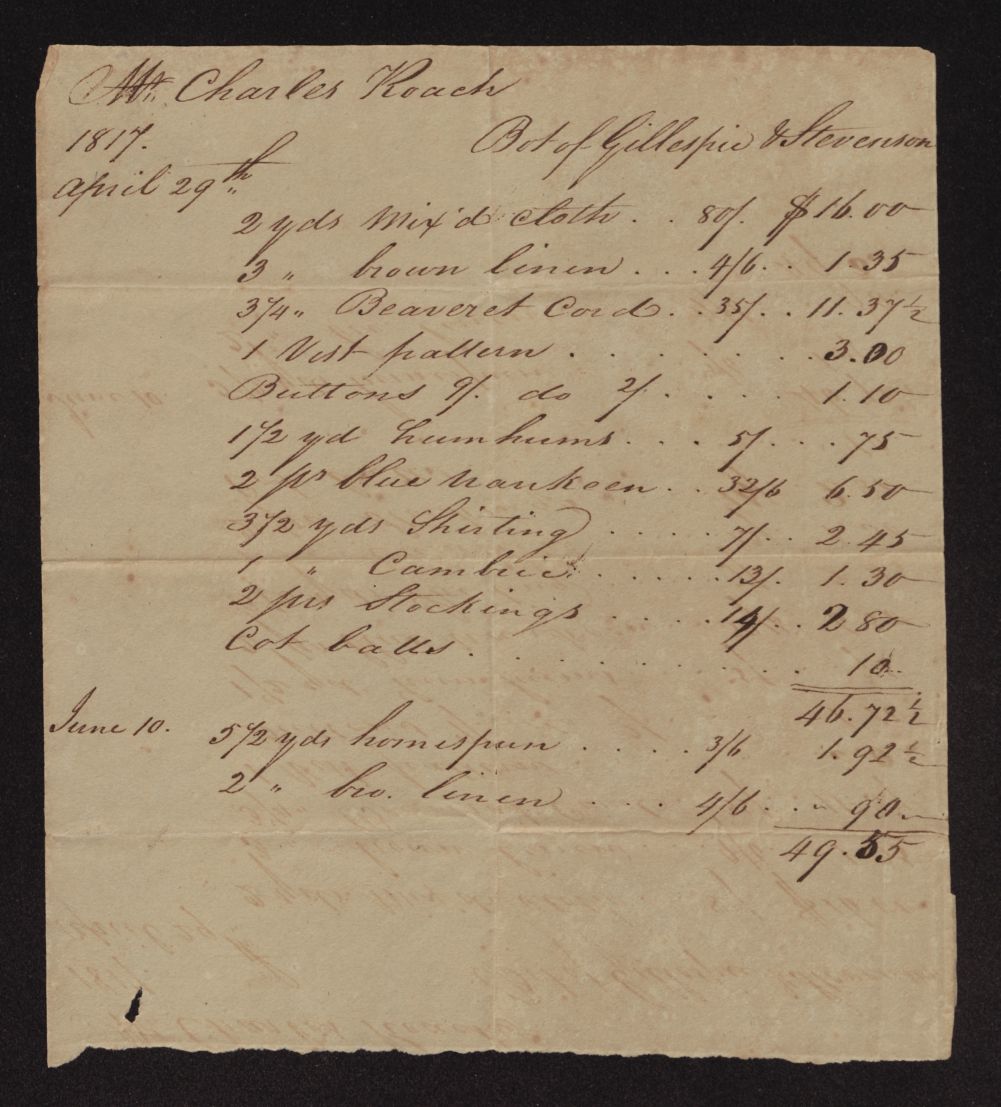 Mr. Charles Roach
1817. Bot of Gillespie & Stevenson
April 29th
2 yds Mix'd cloth . . 80/. $16.00
3 " brown linen . . . 4/6 . . 1.35
3 1/4 " Beaveret Cord . . 35/. . . 11.37 1/2
1 Vest pattern . . . . . . . . 3.00
Buttons 9/. do 2/ . . . . 1.10
1 1/2 yd humhums . . . 5/. . . . 75
2 ps blue Nankeen . . 32/6 6.50
3 1/2 yds Shirting . . . . . 7/. . . 2.45
1 " Cambric . . . . . . 13/. 1.30
2 prs Stockings . . . . . 14/. . . 2 80
Cot balls . . . . . . . . . . . 10
46.72 1/2
June 10. 5 1/2 yds homespun . . . . . 3/6 1.92 1/2
2 " bro. linen . . . . 4/6 . . " 90
49.55